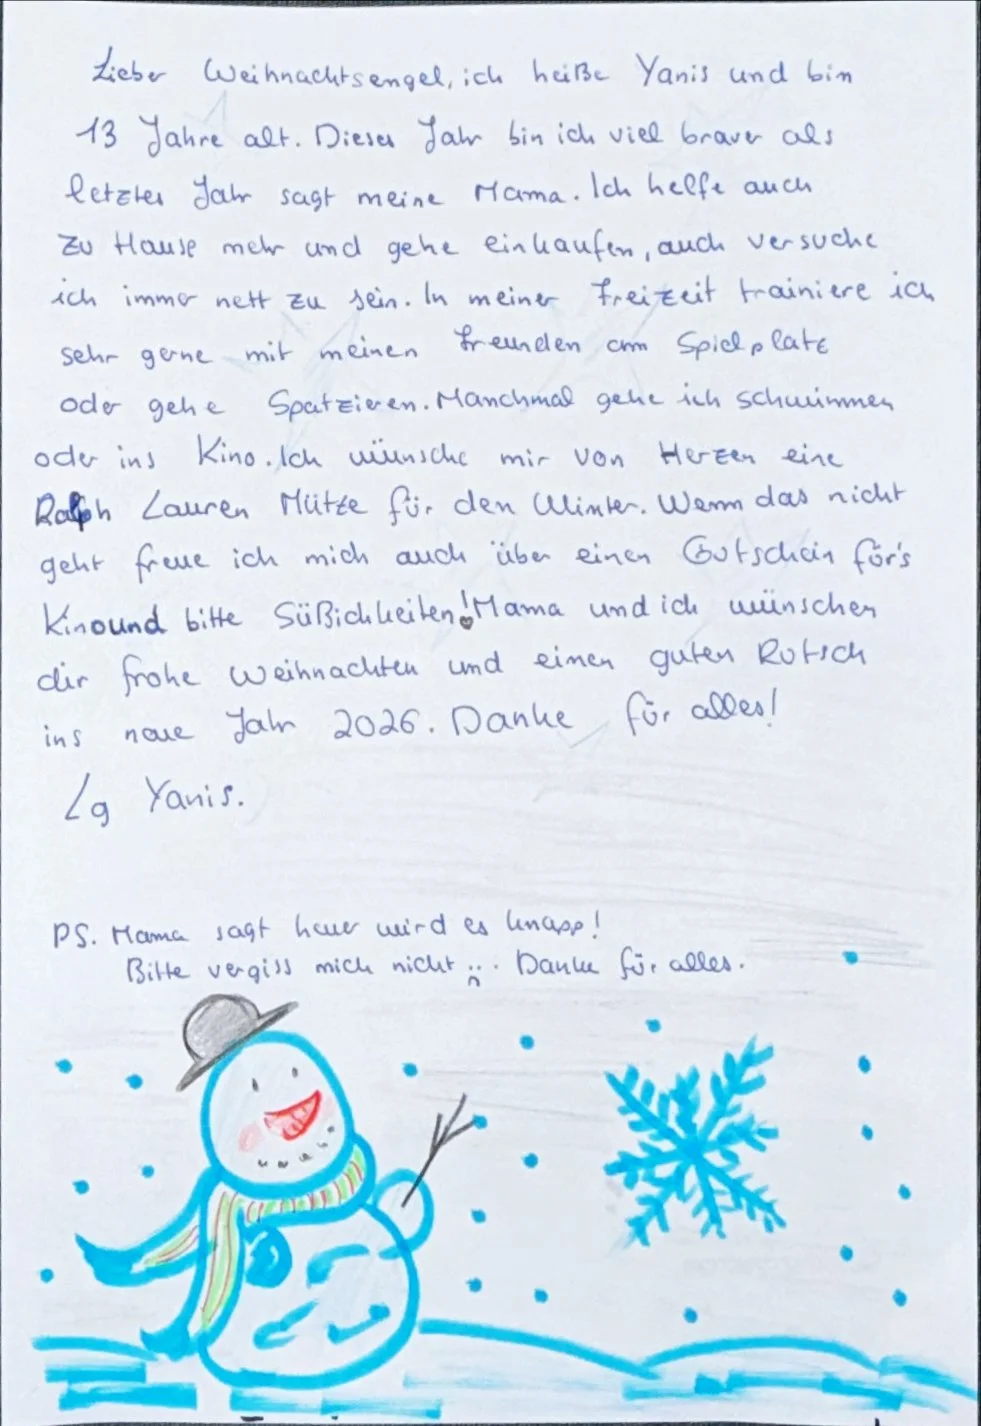 Lieber Weihnachtsengel, ich heiße Yanis und bin
13 Jahre alt. Dieses Jahr bin ich viel braver als
letztes Jahr sagt meine Mama. Ich helfe auch
zu Hause mehr und gehe einkaufen, auch versuche
ich immer nett zu sein. In meiner Freizeit trainiere ich
sehr gerne mit meinen Freunden am Spielplatz
oder gehe Spatzieren. Manchmal gehe ich schwimmen
oder ins Kino. Ich wünsche mir von Herzen eine
Ralph Lauren Mütze für den Winter. Wenn das nicht
geht freue ich mich auch über einen Gutschein für's
Kino und bitte Süßichkeiten! Mama und ich wünschen
dir frohe Weihnachten und einen guten Rutsch
ins neue Jahr 2026. Danke für alles!
Lg Yanis.
PS. Mama sagt heuer wird es knapp!
Bitte vergiss mich nicht. Danke für alles.